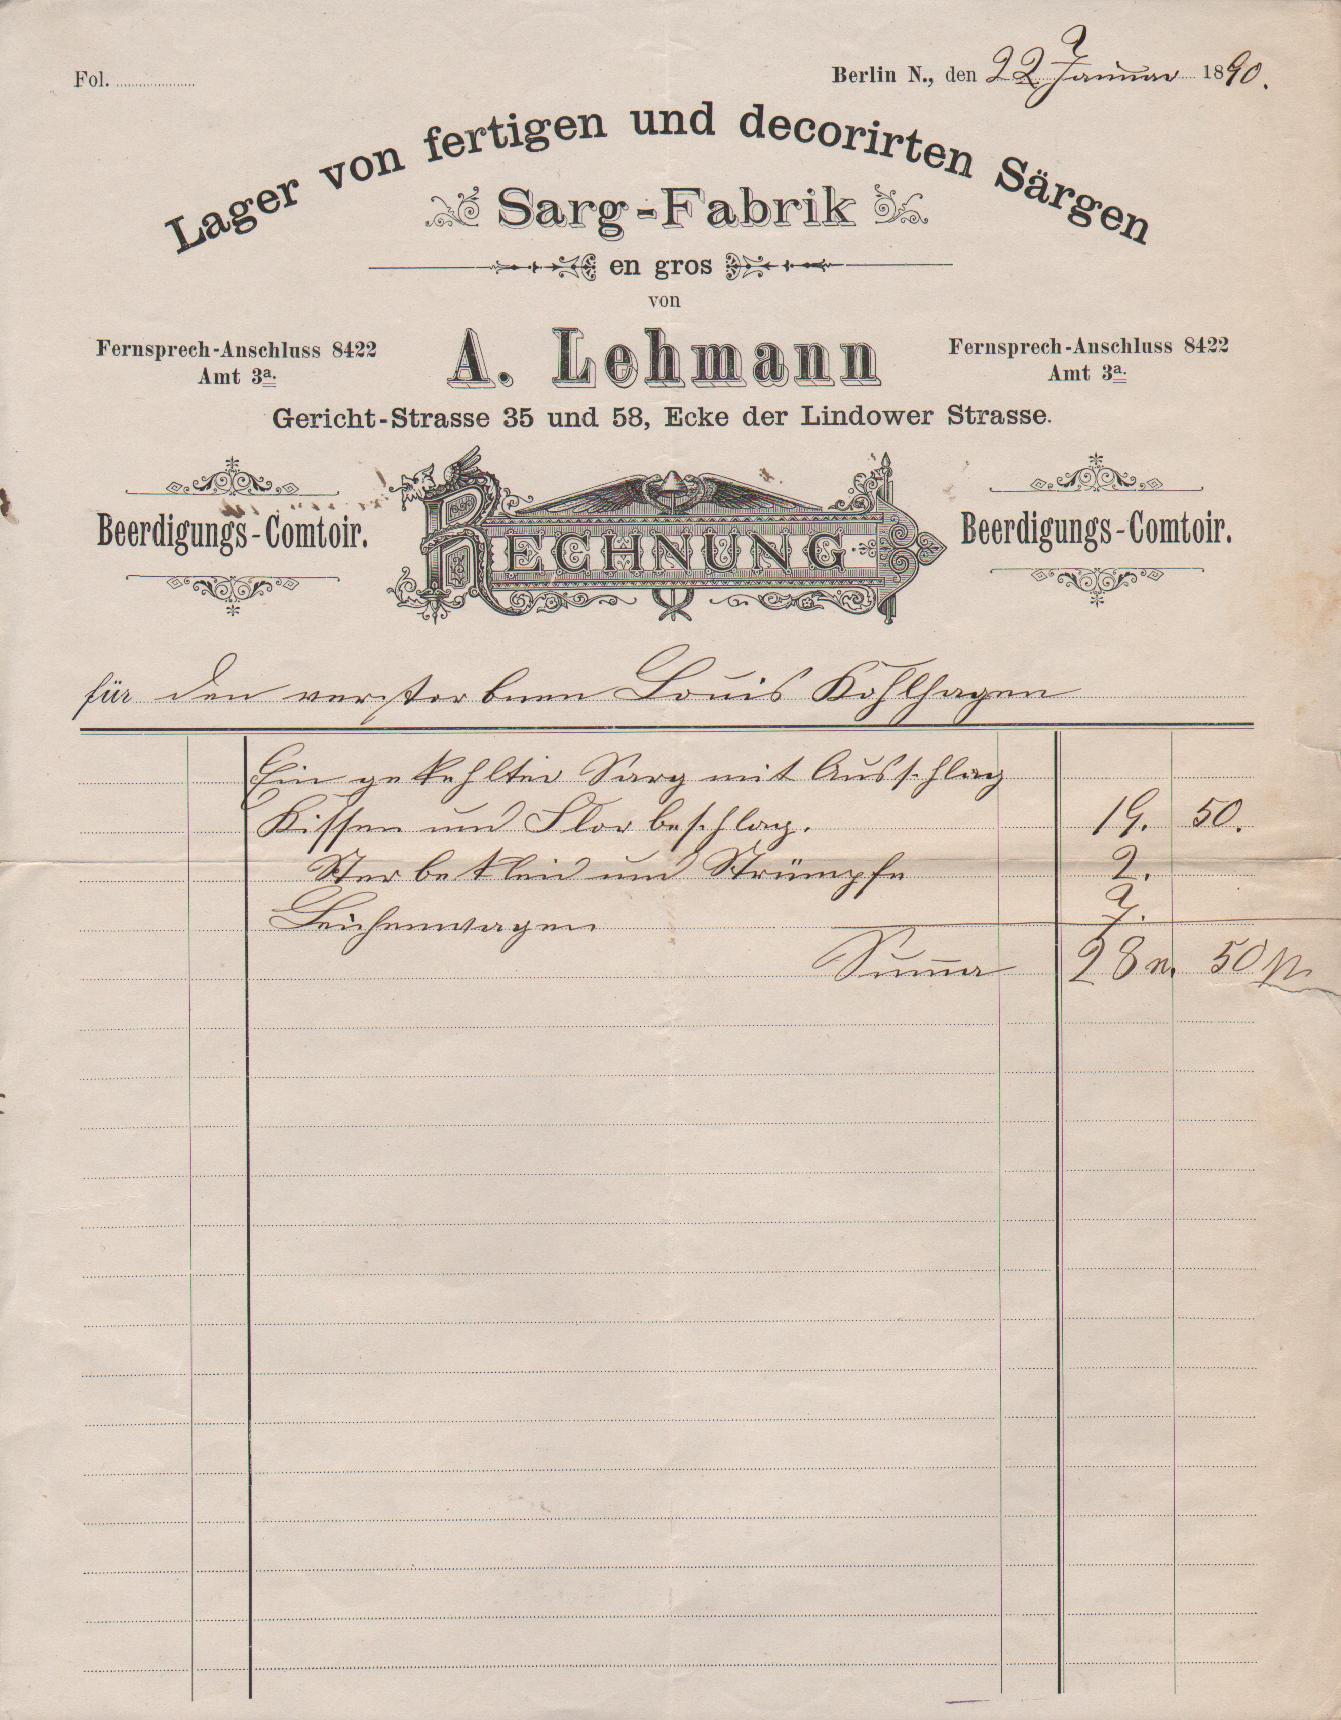 Fol.
Berlin N., den 22 Januar 1890.
Lager von fertigen und decorirten Särgen
Sarg-Fabrik
en gros
von
A. Lehmann
Fernsprech-Anschluss 8422
Amt 3a.
Fernsprech-Anschluss 8422
Amt 3a.
Gericht-Strasse 35 und 58, Ecke der Lindower Strasse.
Beerdigungs-Comtoir.
RECHNUNG
Beerdigungs-Comtoir.
für den verstorbenen Louis Kohlhagen
Ein gekehlter Sarg mit Ausschlag
Kissen und Florbeschlag. 19. 50.
Sterbekleid und Strümpfe 2.
Leichenwagen 7.
Summa 28 M. 50